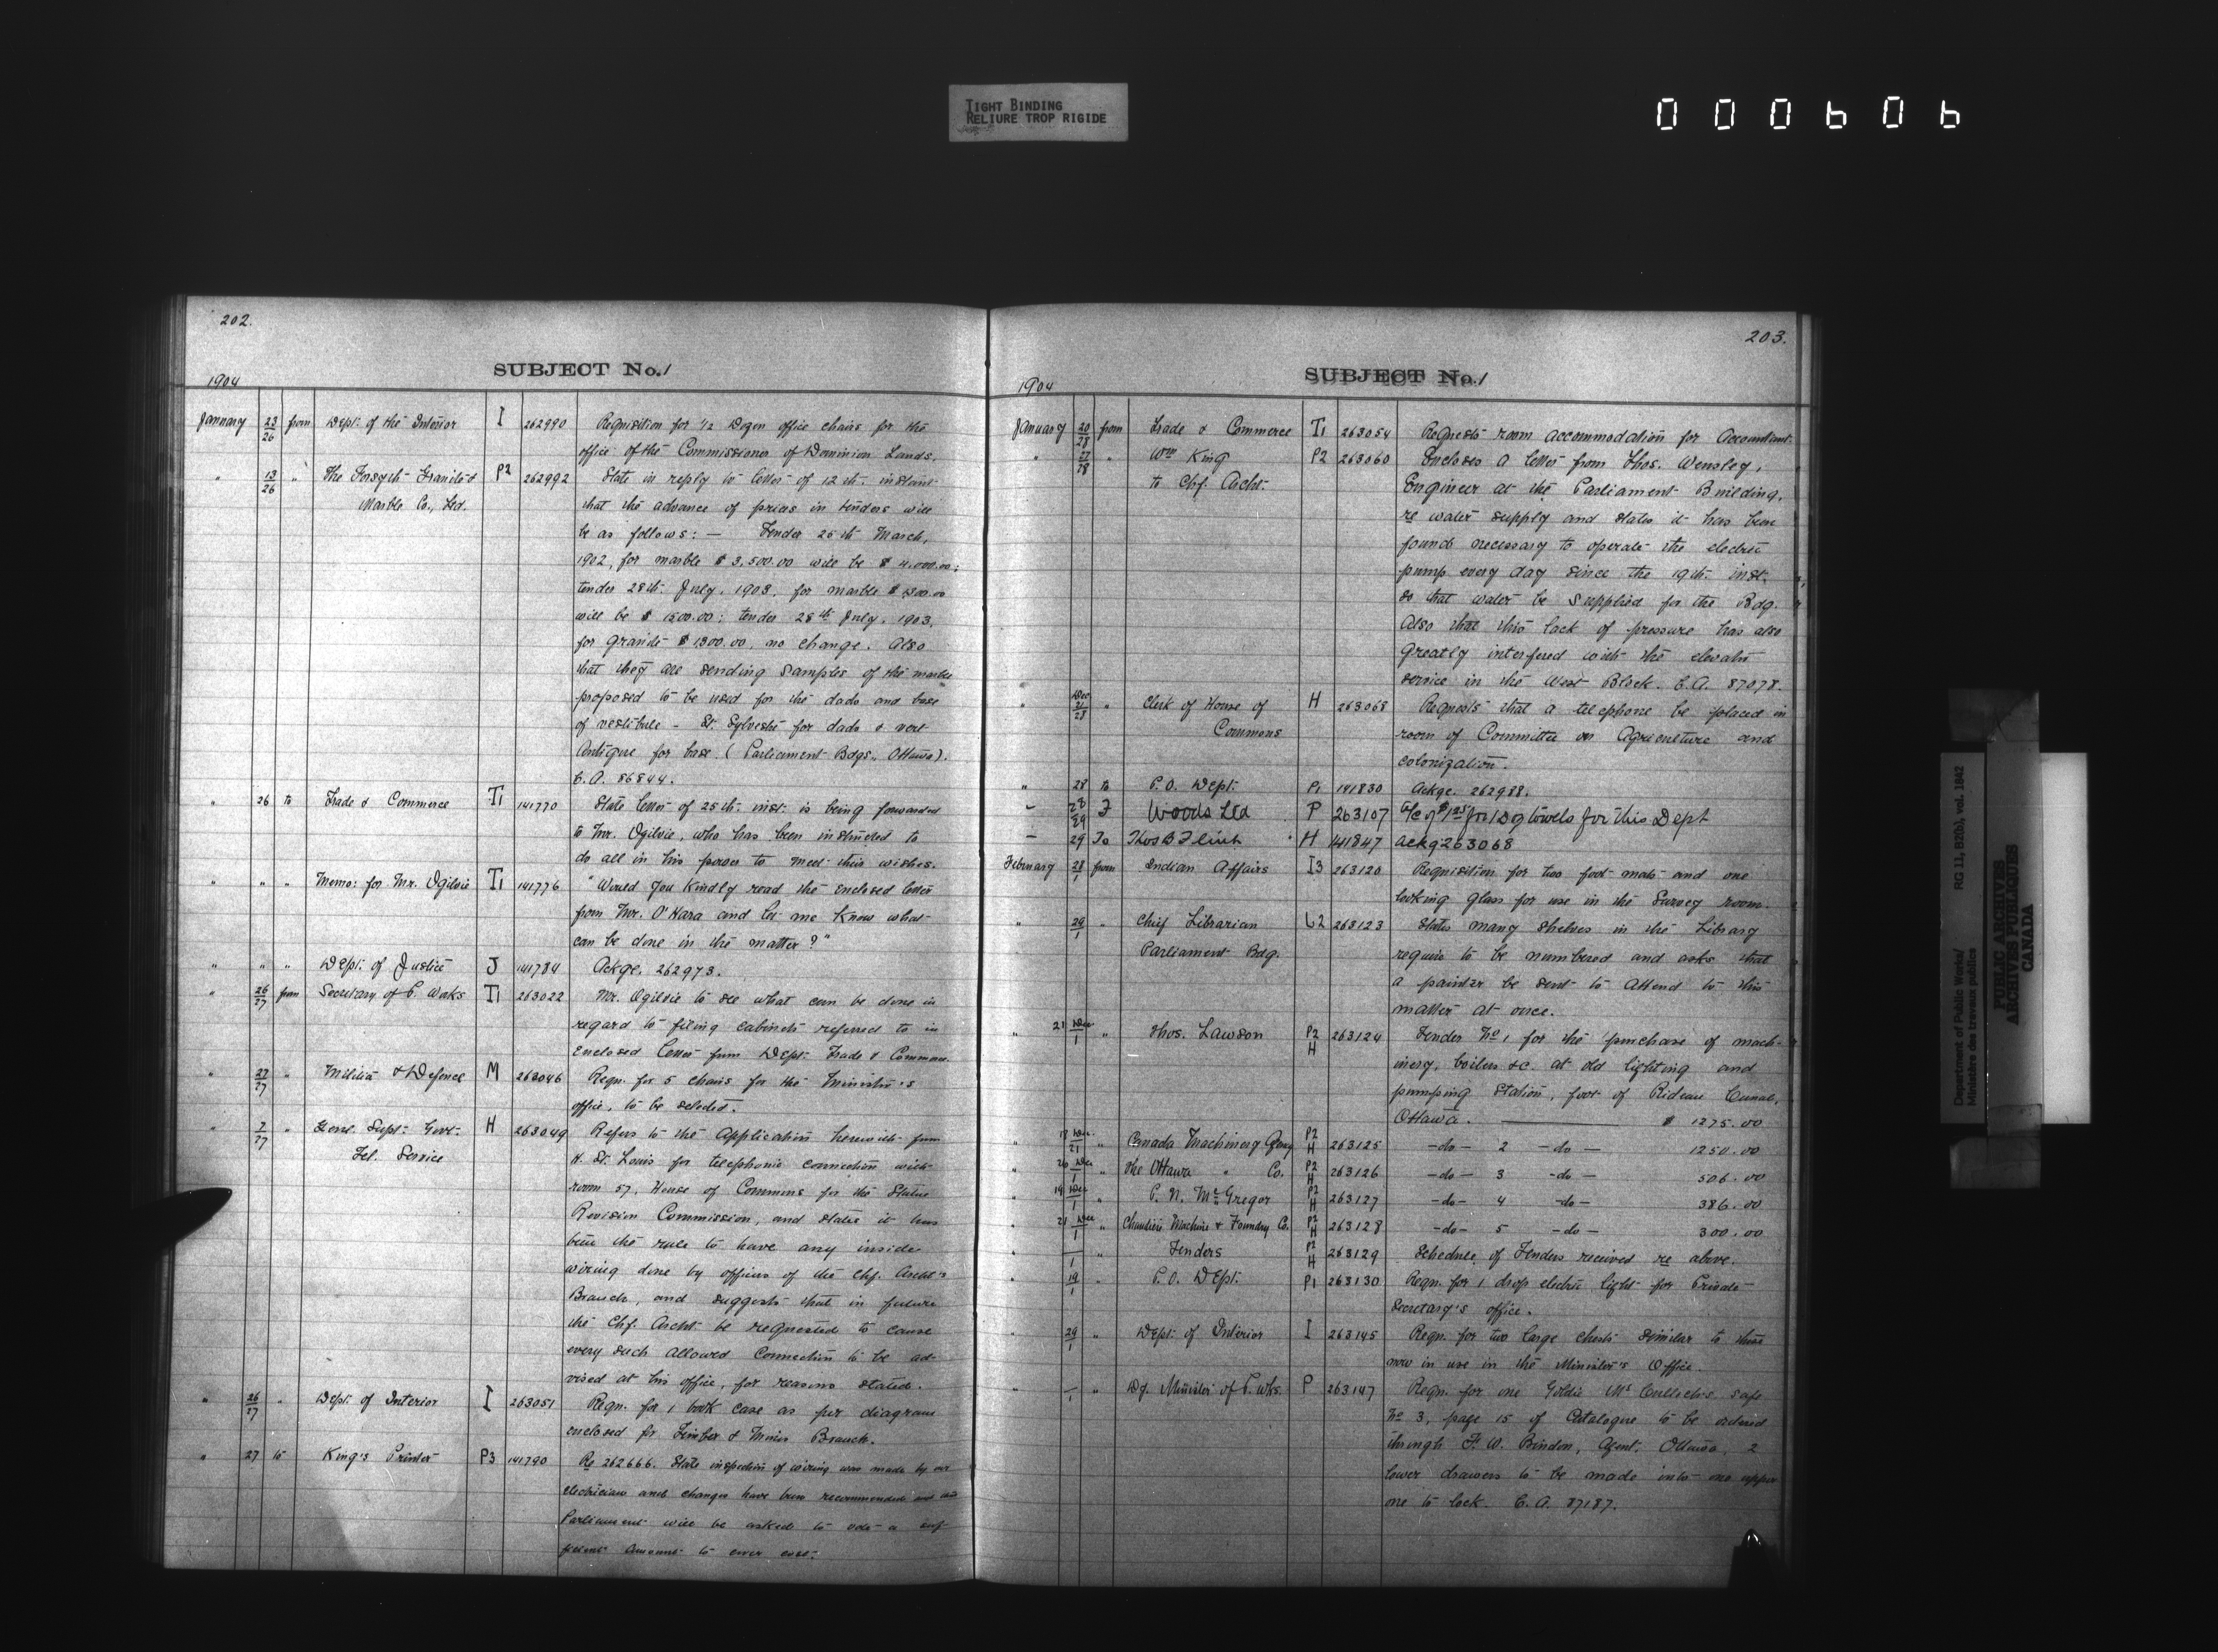 TIGHT BINDING
RELIURE TROP RIGIDE
000606
202.
SUBJECT No. 1
1904
January 23/26 from Dept. of the Interior I 262990 Requisition for 1/2 Dozen office chairs for the
office of the Commissioner of Dominion Lands.
" 13/26 " The Forsyth Granite & P2 262992 State in reply to letter of 12th. instant
Marble Co., Ltd. that the advance of prices in tenders will
be as follows: — Tender 25th March,
1902, for marble $3,500.00 will be $4,000.00;
tender 28th. July, 1903, for marble $1,300.00
will be $1500.00; tender 28th July, 1903,
for granite $1,300.00, no change. Also
that they are sending samples of the marble
proposed to be used for the dado and base
of vestibule - St. Sylvestre for dado & vert
Antique for base. (Parliament Bdgs., Ottawa).
C.A. 86844.
" 26 to Trade & Commerce T1 141770 State letter of 25th. inst. is being forwarded
to Mr. Ogilvie, who has been instructed to
do all in his power to meet their wishes.
" " " Memo: for Mr. Ogilvie T1 141776 "Would you kindly read the enclosed letter
from Mr. O'Hara and let me know what
can be done in the matter?"
" " " Dept. of Justice J 141784 Ackge. 262973.
" 26/27 from Secretary of P. Works T1 263022 Mr. Ogilvie to see what can be done in
regard to filing cabinets referred to in
enclosed letter from Dept. Trade & Commerce.
" 27/27 " Militia & Defence M 263046 Reqn. for 5 chairs for the Minister's
office, to be selected.
" 7/27 " Genl. Supt. Govt. H 263049 Refers to the Application herewith from
Tel. Service H. St. Louis for telephonic connection with
room 57, House of Commons for the Statue
Revision Commission, and states it has
been the rule to have any inside
wiring done by officers of the Chf. Archt's
Branch, and suggests that in future
the Chf. Archt. be requested to cause
every such allowed connection to be ad-
vised at his office, for reasons stated.
" 26/27 " Dept. of Interior I 263051 Reqn. for 1 book case as per diagram
enclosed for Timber & Mines Branch.
" 27 to King's Printer P3 141790 Re 262666. State inspection of wiring was made by our
electrician and changes have been recommended and that
Parliament will be asked to vote a suf-
ficient amount to cover cost.
203.
SUBJECT No. 1
1904
January 20/28 from Trade & Commerce T1 263054 Requests room accommodation for Accountant.
" 27/28 " Wm King P2 263060 Encloses a letter from Thos. Wensley,
to Chf. Archt. Engineer at the Parliament Building,
re water supply and states it has been
found necessary to operate the electric
pump every day since the 19th. inst.
so that water be supplied for the Bdg.
Also that this lack of pressure has also
greatly interfered with the elevator
service in the West Block. C.A. 87078.
" Dec 21/28 " Clerk of House of H 263068 Requests that a telephone be placed in
Commons room of Committee on Agriculture and
colonization.
" 28 to P.O. Dept. P1 141830 Ackge. 262988.
" 28/29 F Woods Ltd P 263107 for 1 Dz towels for this Dept
" 29 To Thos B Flint H 141847 ackg 263068
February 28/1 from Indian Affairs I3 263120 Requisition for two foot mats and one
looking glass for use in the Survey room.
" 29/1 " Chief Librarian L2 263123 States many shelves in the Library
Parliament Bdg. require to be numbered and asks that
a painter be sent to attend to this
matter at once.
" 21 Dec/1 " Thos. Lawson P2 H 263124 Tender No 1 for the purchase of mach-
inery, boilers &c. at old lighting and
pumping station, foot of Rideau Canal,
Ottawa. $ 1275.00
" 18 Dec/21 " Canada Machinery Agency P2 H 263125 -do- 2 -do- 1250.00
" 20 Dec/1 " The Ottawa " Co. P2 H 263126 -do- 3 -do- 506.00
" 19 Dec/1 " P. N. McGregor P2 H 263127 -do- 4 -do- 386.00
" 21 Dec/1 " Chaudiere Machine & Foundry Co. P2 H 263128 -do- 5 -do- 300.00
" —/1 " Tenders P2 H 263129 Schedule of Tenders received re above.
" 19/1 " P.O. Dept. P1 263130 Reqn. for 1 drop electric light for Private
Secretary's office.
" 29/1 " Dept. of Interior I 263145 Reqn. for two large chests similar to those
now in use in the Minister's Office.
" —/1 " Dy. Minister of P. Wks. P 263147 Reqn. for one Goldie McCulloch's safe
No 3, page 15 of Catalogue to be ordered
through F. W. Bindon, Agent, Ottawa, 2
lower drawers to be made into one upper
one to lock. C.A. 87187.
Department of Public Works/
Ministère des travaux publics
RG 11, B2(b), vol. 1842
PUBLIC ARCHIVES
ARCHIVES PUBLIQUES
CANADA